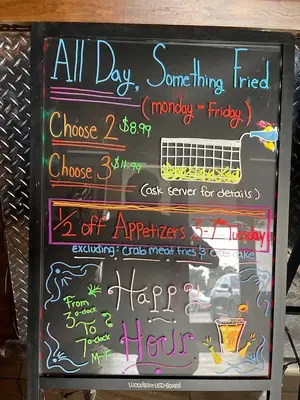 All Day, Something Fried
(monday - Friday)
Choose 2 $8.99
Choose 3 $11.99
(ask server for details)
1/2 off Appetizers 3-7 Tuesday
excluding: crab meat fries & crab cake
Happy
From
3 o-clock
To
7 o-clock
M-F
Hour